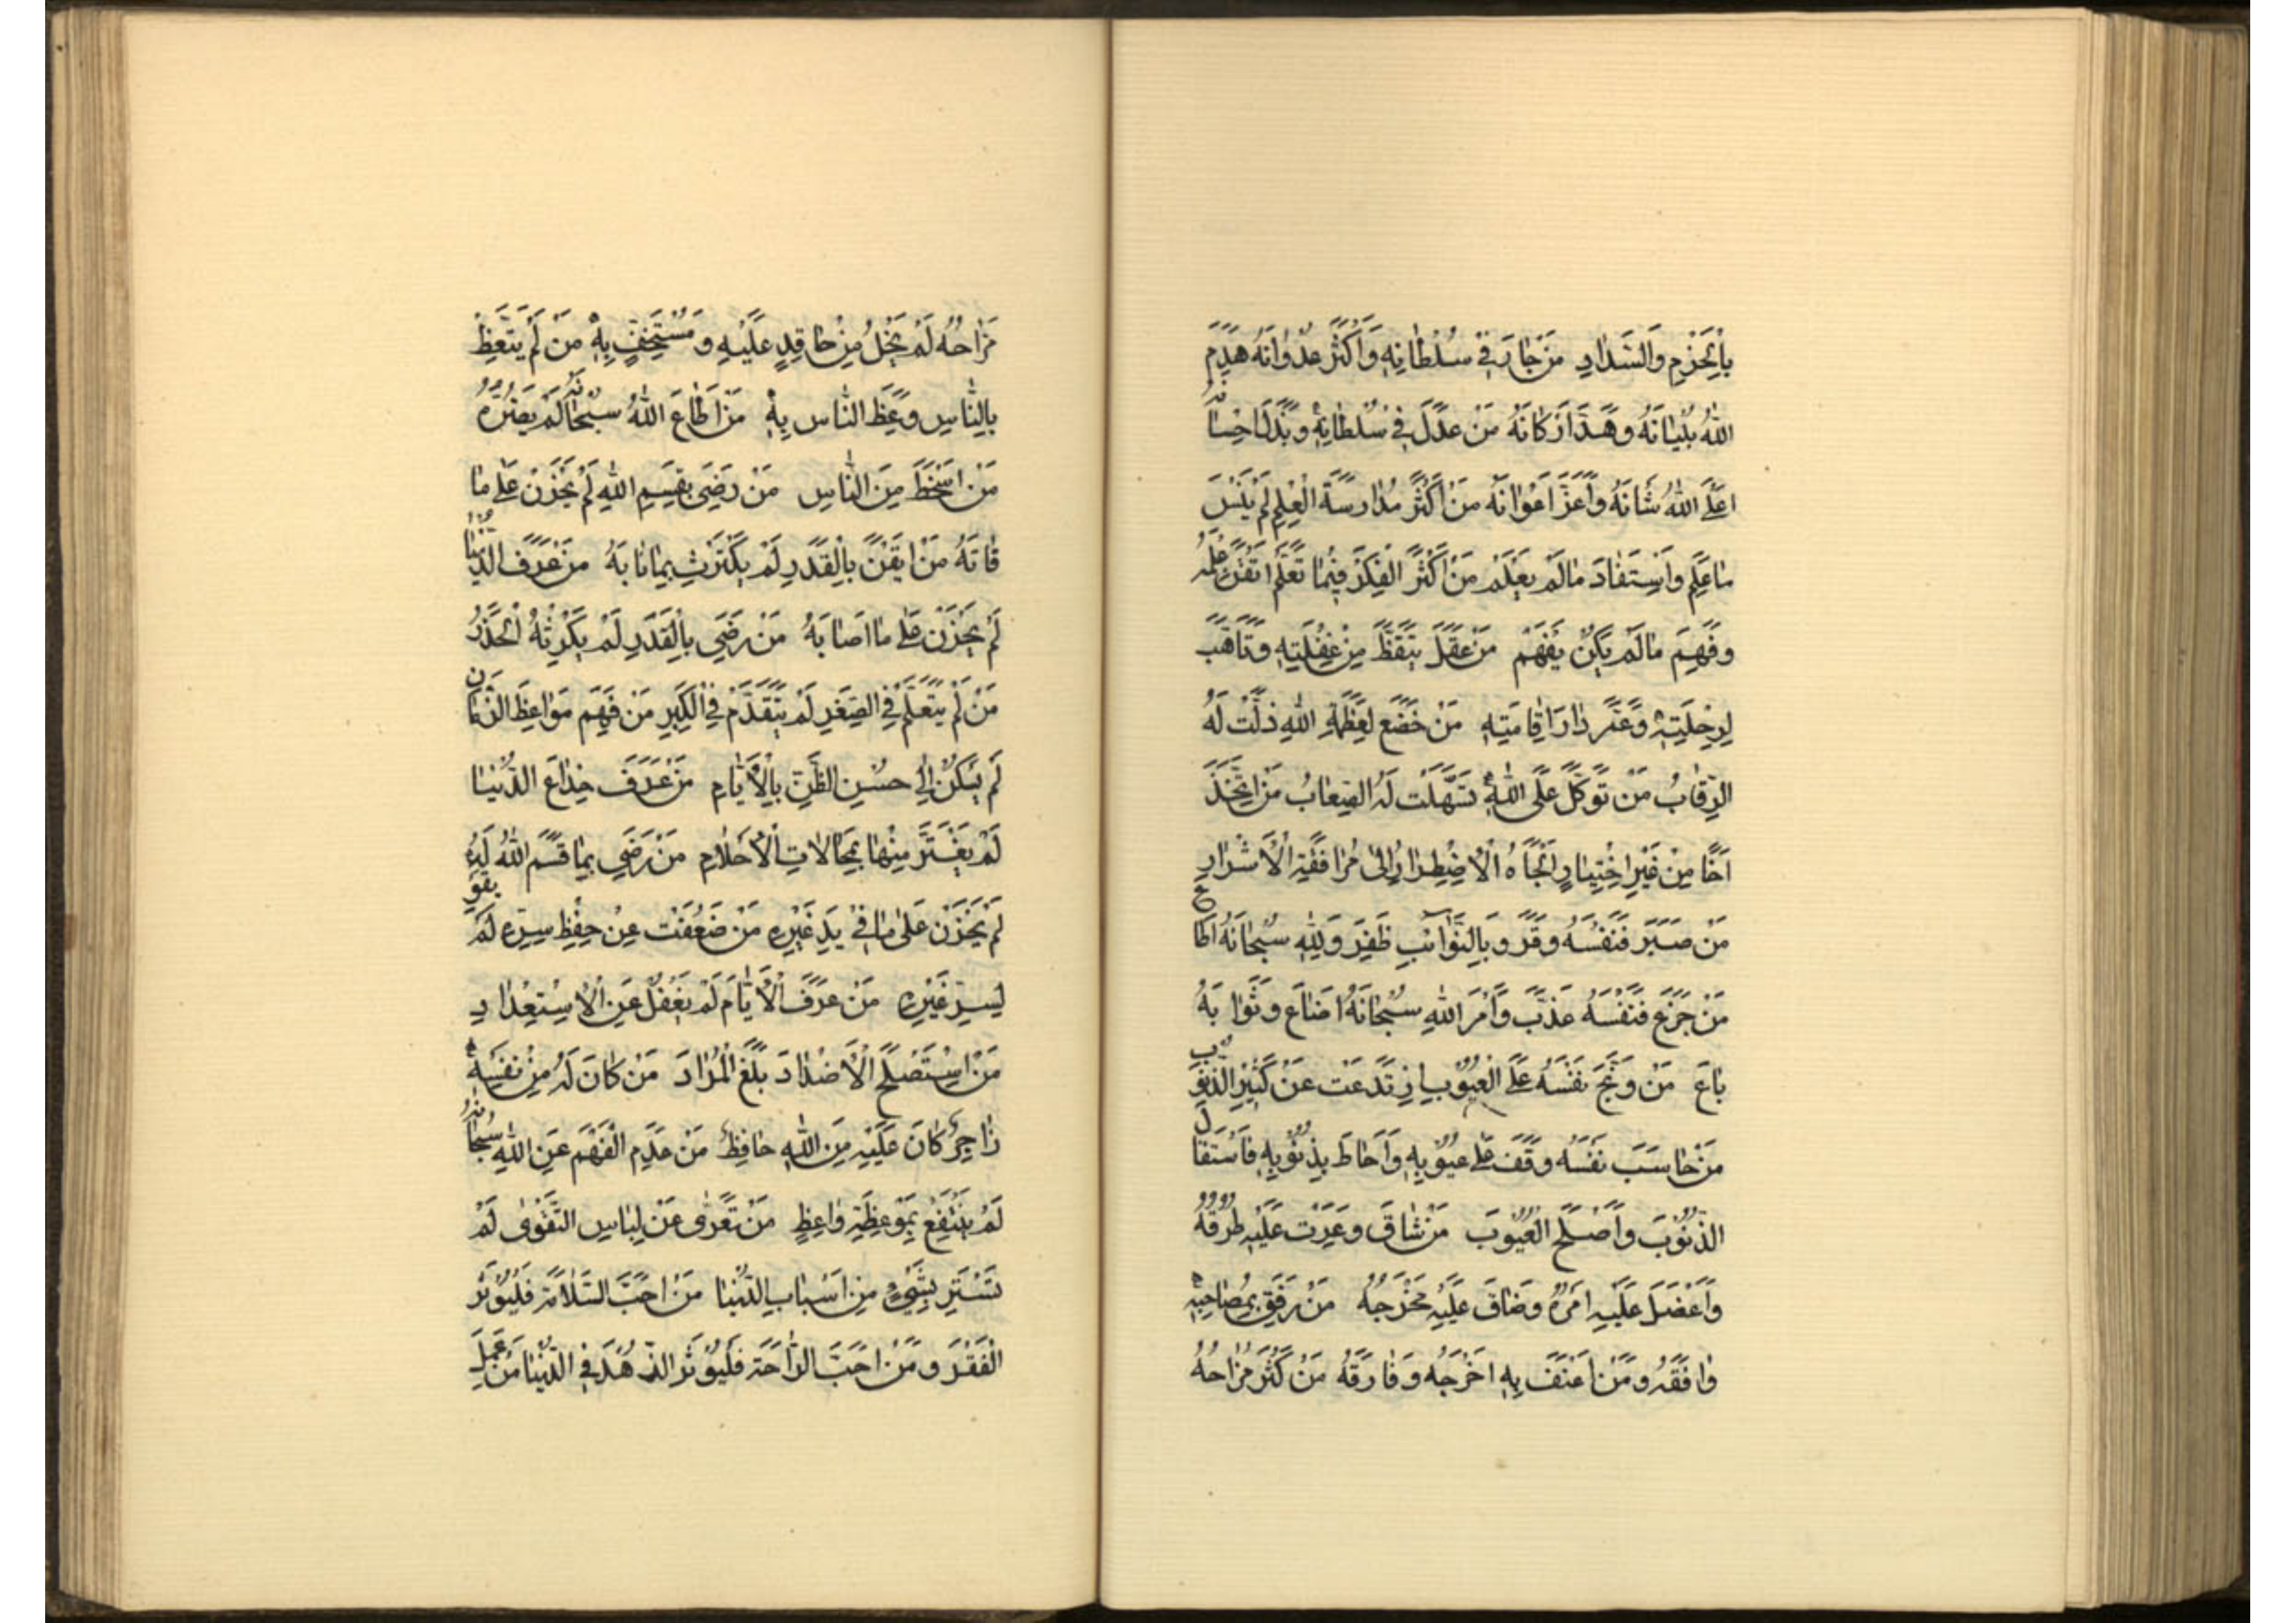 بِالْحَزْمِ وَالسَّدَادِ مَنْ جَارَ فِي سُلْطَانِهِ وَأَكْثَرَ عُدْوَانَهُ هَدَمَ
اللهُ بُنْيَانَهُ وَهَدَّ اَرْكَانَهُ مَنْ عَدَلَ فِي سُلْطَانِهِ وَبَذَلَ اِحْسَانَهُ
اعَلَى اللهُ شَانَهُ وَاَعَزَّ اَعْوَانَهُ مَنْ اَكْثَرَ مُدَارَسَةَ الْعِلْمِ لَمْ يَنْسَ
مَا عَلِمَ وَاسْتَفَادَ مَا لَمْ يَعْلَمْ مَنْ اَكْثَرَ الْفِكْرَ فِيمَا تَعَلَّمَ اَتْقَنَ عِلْمَهُ
وَفَهِمَ مَا لَمْ يَكُنْ يَفْهَمُ مَنْ عَقَلَ تَيَقَّظَ مِنْ غَفْلَتِهِ وَتَاَهَّبَ
لِرِحْلَتِهِ وَعَمَّرَ دَارَ اِقَامَتِهِ مَنْ خَضَعَ لِعَظَمَةِ اللهِ ذَلَّتْ لَهُ
الرِّقَابُ مَنْ تَوَكَّلَ عَلَى اللهِ تَسَهَّلَتْ لَهُ الصِّعَابُ مَنِ اتَّخَذَ
اَخًا مِنْ غَيْرِ اخْتِبَارٍ اَلْجَاَهُ الْاِضْطِرَارُ اِلَى مُرَافَقَةِ الْاَشْرَارِ
مَنْ صَبَرَ فَنَفْسَهُ وَقَّرَ وَبِالثَّوَابِ ظَفِرَ وَلِلّٰهِ سُبْحَانَهُ اَطَاعَ
مَنْ جَزَعَ فَنَفْسَهُ عَذَّبَ وَاَمْرَ اللهِ سُبْحَانَهُ اَضَاعَ وَثَوَابَهُ
بَاعَ مَنْ وَبَّخَ نَفْسَهُ عَلَى الْعُيُوبِ ارْتَدَعَتْ عَنْ كَثِيرِ الذُّنُوبِ
مَنْ حَاسَبَ نَفْسَهُ وَقَفَ عَلَى عُيُوبِهِ وَاَحَاطَ بِذُنُوبِهِ فَاسْتَقَالَ
الذُّنُوبَ وَاَصْلَحَ الْعُيُوبَ مَنْ شَاقَّ وَعَرَتْ عَلَيْهِ طُرُقُهُ
وَاَعْضَلَ عَلَيْهِ اَمْرُهُ وَضَاقَ عَلَيْهِ مَخْرَجُهُ مَنْ رَفَقَ بِمُصَاحِبِهِ
وَافَقَهُ وَمَنْ اَعْنَفَ بِهِ اَخْرَجَهُ وَفَارَقَهُ مَنْ كَثُرَ مُزَاحُهُ
مَزَاحُهُ لَمْ يَخْلُ مِنْ حَاقِدٍ عَلَيْهِ وَمُسْتَخِفٍّ بِهِ مَنْ لَمْ يَتَّعِظْ
بِالنَّاسِ وَعَظَ النَّاسَ بِهِ مَنْ اَطَاعَ اللهَ سُبْحَانَهُ لَمْ يَضُرَّهُ
مَنْ اَسْخَطَ مِنَ النَّاسِ مَنْ رَضِيَ بِقِسَمِ اللهِ لَمْ يَحْزَنْ عَلَى مَا
فَاتَهُ مَنْ اَيْقَنَ بِالْقَدَرِ لَمْ يَكْتَرِثْ بِمَا نَابَهُ مَنْ عَرَفَ الدُّنْيَا
لَمْ يَحْزَنْ عَلَى مَا اَصَابَهُ مَنْ رَضِيَ بِالْقَدَرِ لَمْ يَكْرِثْهُ الْحَذَرُ
مَنْ لَمْ يَتَعَلَّمْ فِي الصِّغَرِ لَمْ يَتَقَدَّمْ فِي الْكِبَرِ مَنْ فَهِمَ مَوَاعِظَ الزَّمَانِ
لَمْ يَسْكُنْ اِلَى حُسْنِ الظَّنِّ بِالْاَيَّامِ مَنْ عَرَفَ خِدَاعَ الدُّنْيَا
لَمْ يَغْتَرَّ مِنْهَا بِمَحَالَاتِ الْاَحْلَامِ مَنْ رَضِيَ بِمَا قَسَمَ اللهُ لَهُ
لَمْ يَحْزَنْ عَلَى مَا فِي يَدِ غَيْرِهِ مَنْ ضَعُفَتْ عَنْ حِفْظِ سِرِّهِ لَمْ يَقْوَ
لِسِرِّ غَيْرِهِ مَنْ عَرَفَ الْاَيَّامَ لَمْ يَغْفُلْ عَنِ الْاِسْتِعْدَادِ
مَنِ اسْتَصْلَحَ الْاَضْدَادَ بَلَغَ الْمُرَادَ مَنْ كَانَ لَهُ مِنْ نَفْسِهِ
زَاجِرٌ كَانَ عَلَيْهِ مِنَ اللهِ حَافِظٌ مَنْ عَدِمَ الْفَهْمَ عَنِ اللهِ سُبْحَانَهُ
لَمْ يَنْتَفِعْ بِمَوْعِظَةِ وَاعِظٍ مَنْ تَعَرَّى عَنْ لِبَاسِ التَّقْوٰى لَمْ
تَسْتَتِرْ بِشَيْءٍ مِنْ اَسْبَابِ الدُّنْيَا مَنْ اَحَبَّ السَّلَامَةَ فَلْيُؤْثِرِ
الْفَقْرَ وَمَنْ اَحَبَّ الرَّاحَةَ فَلْيُؤْثِرِ الزُّهْدَ فِي الدُّنْيَا مَنْ عَمِلَ